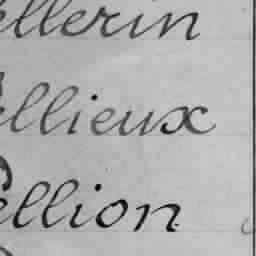 ellerin
ellieux
ellion